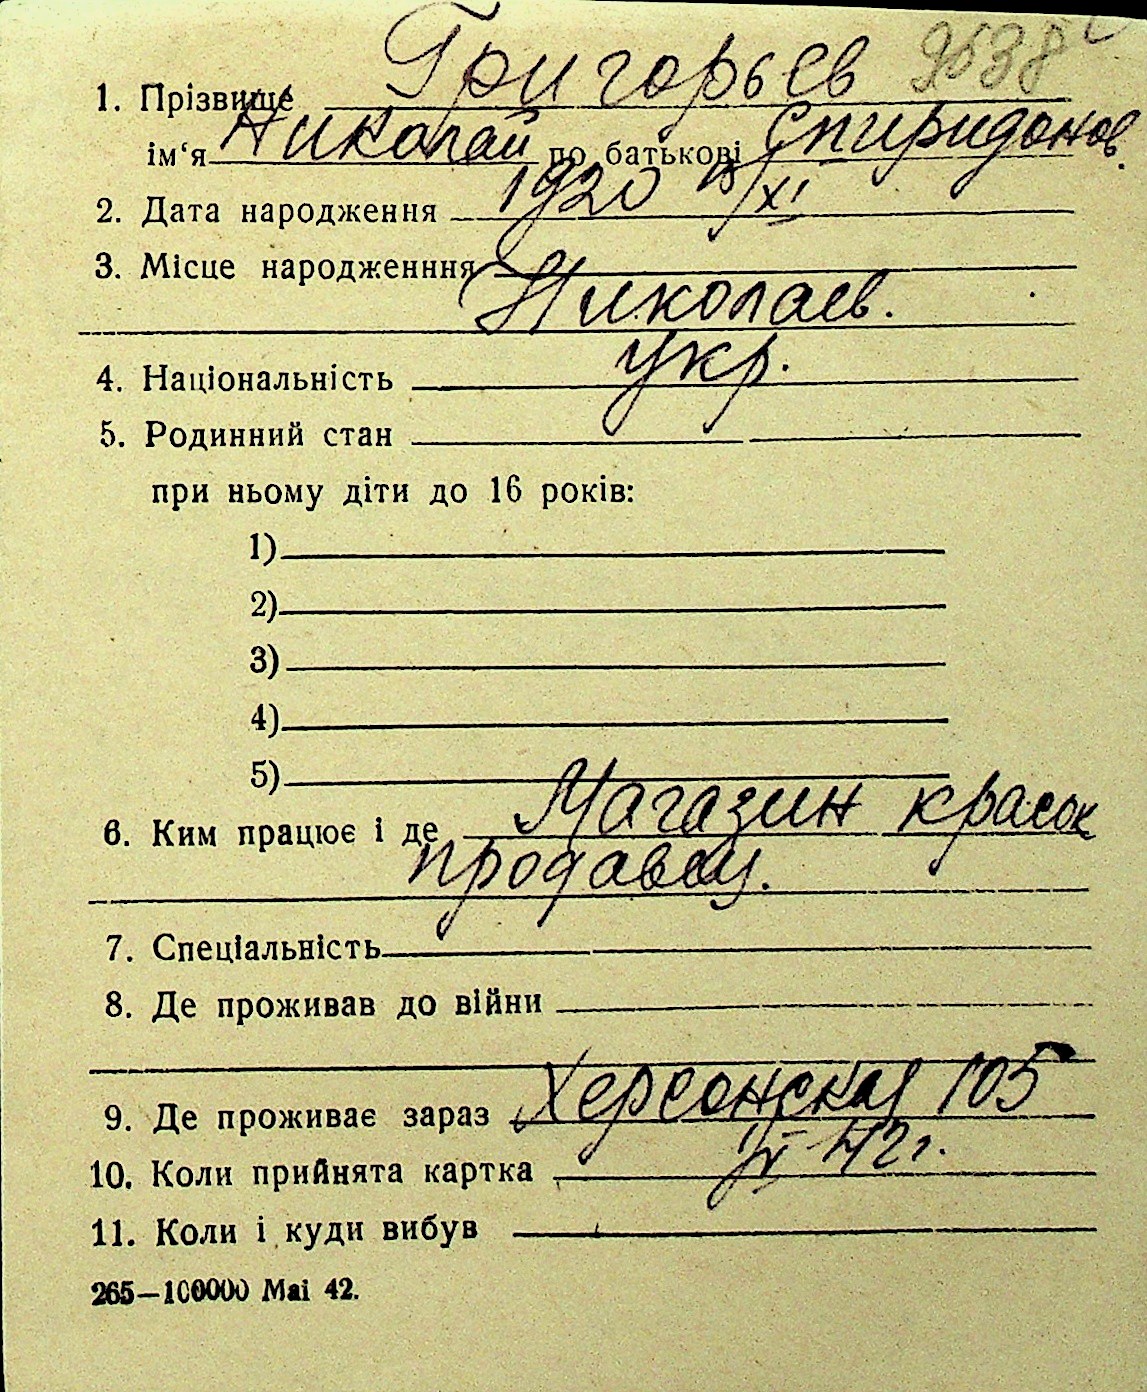 1. Прізвище Григорьев 9538
ім‘я Николай по батькові Спиридонов.
2. Дата народження 1920 /XI
3. Місце народженння
Николаев.
4. Національність укр.
5. Родинний стан
при ньому діти до 16 років:
1)
2)
3)
4)
5)
6. Ким працює і де Магазин красок
продавец.
7. Спеціальність
8. Де проживав до війни
9. Де проживає зараз Херсонская 105
10. Коли прийнята картка 42 г.
11. Коли і куди вибув
265—100000 Mai 42.